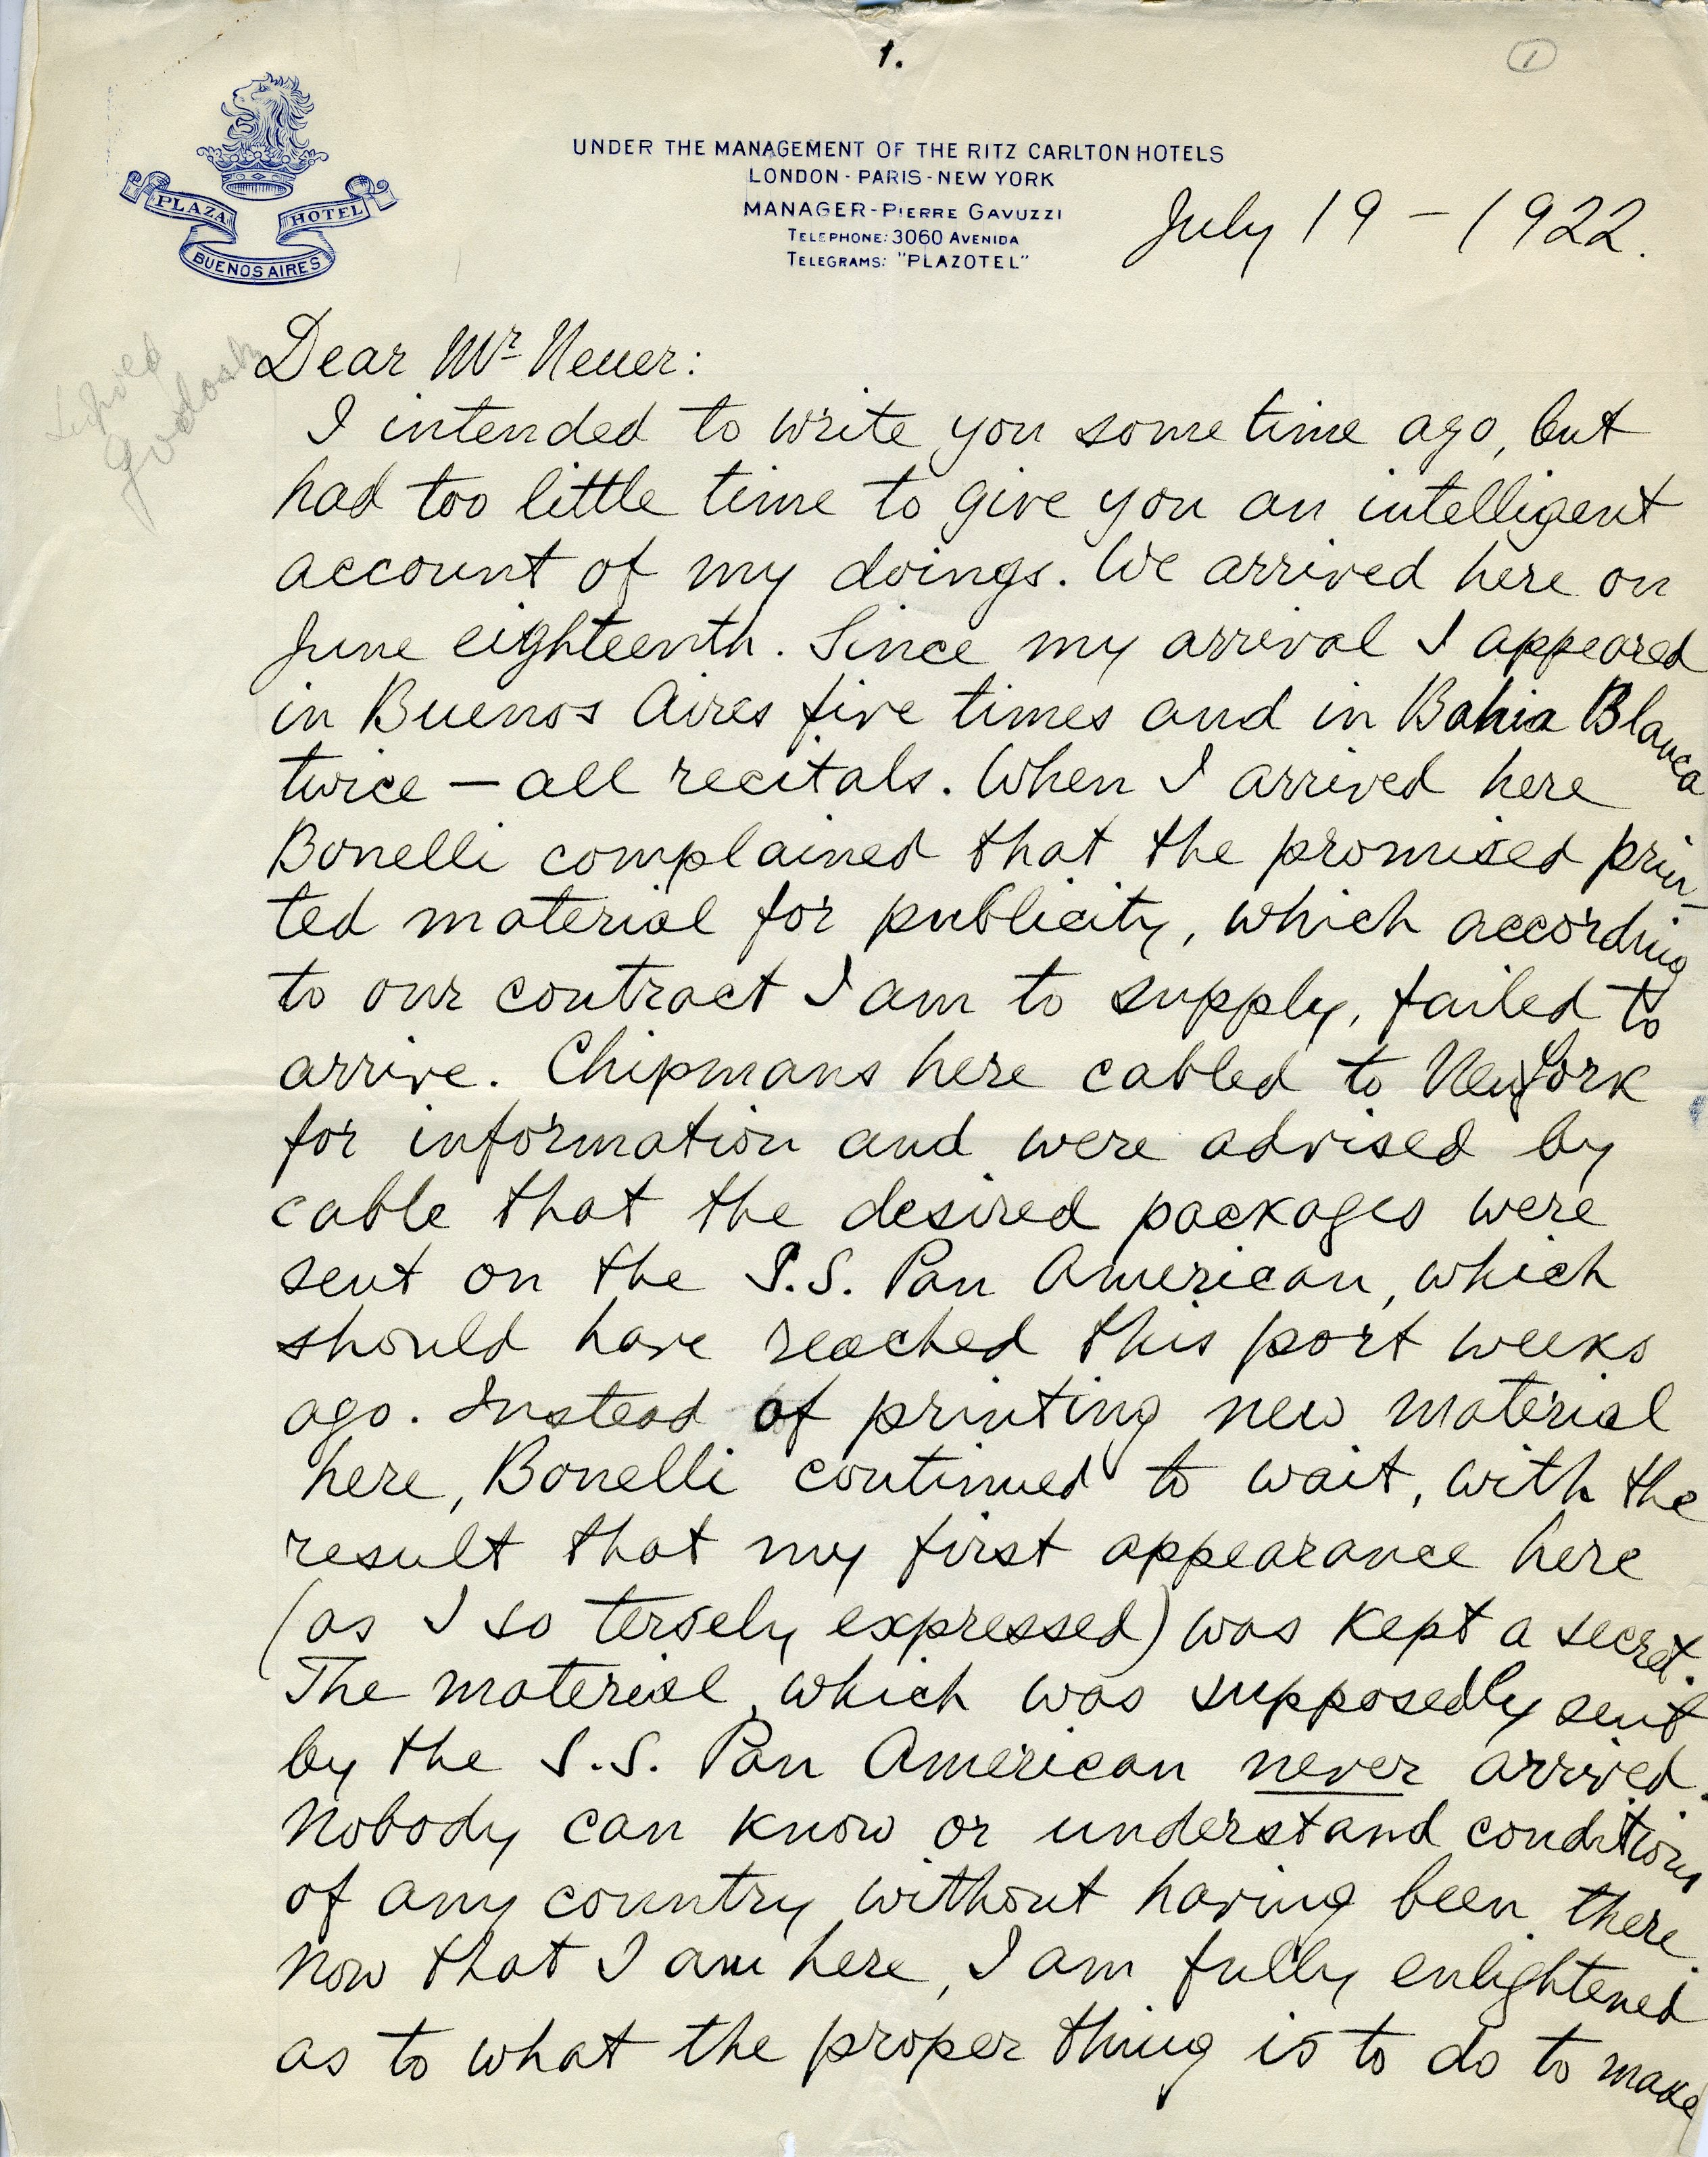 1.
1
PLAZA HOTEL
BUENOS AIRES
UNDER THE MANAGEMENT OF THE RITZ CARLTON HOTELS
LONDON - PARIS - NEW YORK
MANAGER - PIERRE GAVUZZI
TELEPHONE: 3060 AVENIDA
TELEGRAMS: "PLAZOTEL"
July 19 - 1922.
Dear Mr Neuer:
I intended to write you some time ago, but
had too little time to give you an intelligent
account of my doings. We arrived here on
June eighteenth. Since my arrival I appeared
in Buenos Aires five times and in Bahia Blanca
twice — all recitals. When I arrived here
Bonelli complained that the promised prin-
ted material for publicity, which according
to our contract I am to supply, failed to
arrive. Chipmans here cabled to New York
for information and were advised by
cable that the desired packages were
sent on the S.S. Pan American, which
should have reached this port weeks
ago. Instead of printing new material
here, Bonelli continued to wait, with the
result that my first appearance here
(as I so tersely expressed) was kept a secret.
The material, which was supposedly sent
by the S.S. Pan American never arrived.
Nobody can know or understand conditions
of any country without having been there.
Now that I am here, I am fully enlightened
as to what the proper thing is to do to make